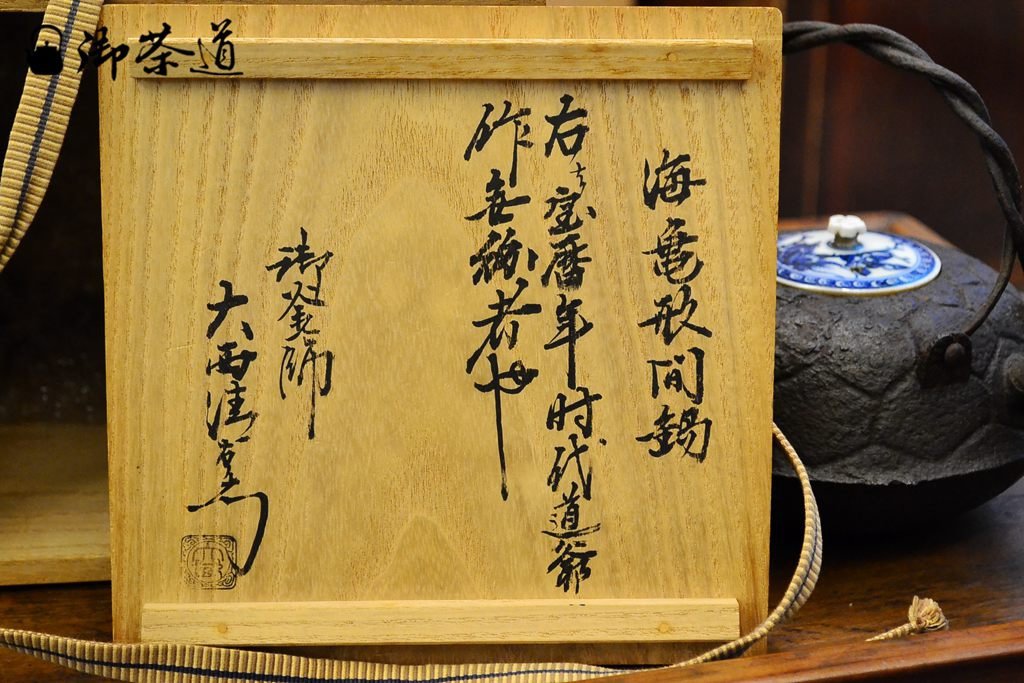 御茶道
海亀形間鍋
右ハ宝暦年时代道爺
作無疑者也
御釜師
大西清右衛門